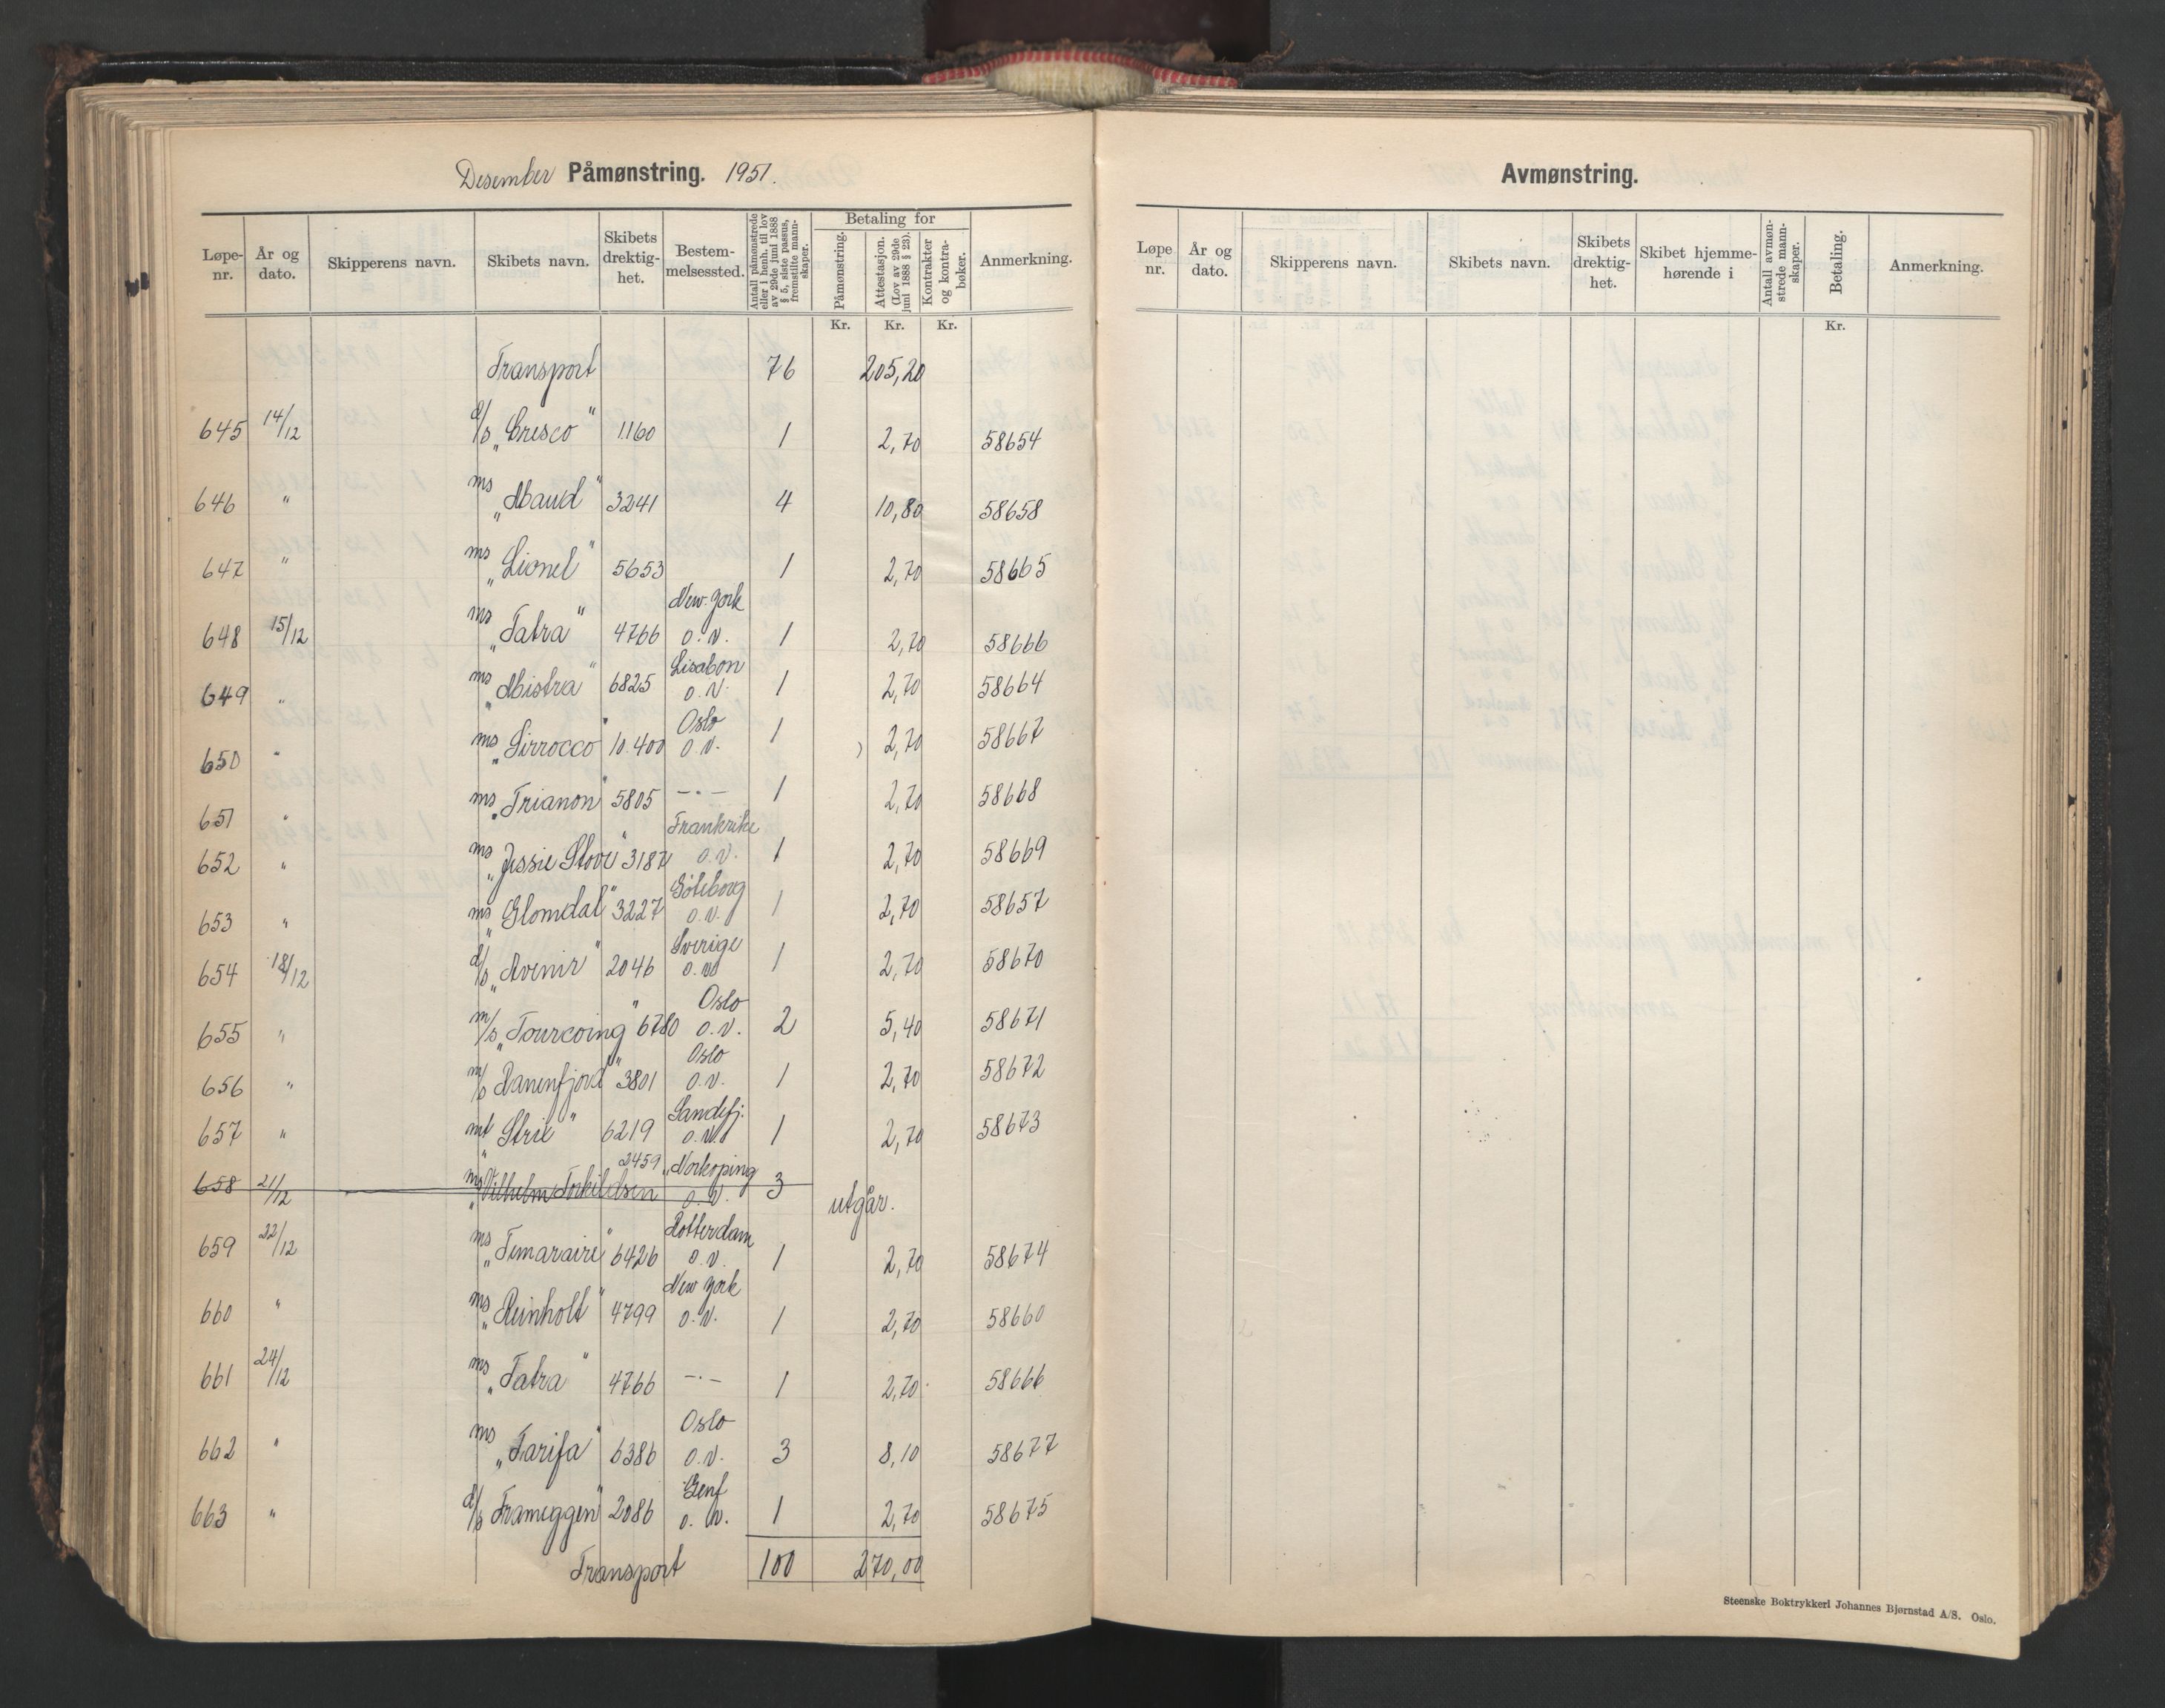 Desember Påmønstring. 1951.
Løpe-nr. År og dato. Skipperens navn. Skibets navn. Skibets drektig-het. Bestem-melsessted. Antall påmønstrede eller i henh. til lov av 29de juni 1888 § 5, siste passus, fremstilte mann-skaper. Betaling for Påmønstring. Attestasjon. (Lov av 29de juni 1888 § 23). Kontrakter og kontra-bøker. Anmerkning.
Kr. Kr. Kr.
Transport 76 205,20
645 14/12 d/s „Cresco" 1160 1 2,70 58654
646 " ms „Maud" 3241 4 10,80 58658
647 " ms „Lionel" 5653 1 2,70 58665
648 15/12 ms „Tatra" 4766 New-York o.v. 1 2,70 58666
649 " ms „Mistra" 6825 Lisabon o.v. 1 2,70 58664
650 " ms „Sirrocco" 10.400 Oslo o.v. 1 2,70 58667
651 " ms „Trianon" 5805 -·- 1 2,70 58668
652 " ms „Jessie Stove" 3187 Frankrike o.v. 1 2,70 58669
653 " ms „Glomdal" 3227 Göteborg o.v. 1 2,70 58657
654 18/12 d/s „Avenir" 2046 Sverige o.v. 1 2,70 58670
655 " m/s „Tourcoing" 6780 Oslo o.v. 2 5,40 58671
656 " m/s Ranenfjord" 3801 Oslo o.v. 1 2,70 58672
657 " mt „Strix" 6219 Sandefj. o.v. 1 2,70 58673
658 21/12 ms „Vilhelm Torkildsen 2459 „Norkøping o.v. 3 utgår.
659 22/12 ms „Temaraire" 6426 Rotterdam o.v. 1 2,70 58674
660 " ms „Reinholt" 4799 New York o.v. 1 2,70 58660
661 24/12 ms „Tatra" 4766 -·- 1 2,70 58666
662 " ms „Tarifa" 6386 Oslo o.v. 3 8,10 58677
663 " d/s Frameggen" 2086 Genf o.v. 1 2,70 58675
Transport 100 270,00
Avmønstring.
Løpe nr. År og dato. Skipperens navn. Skibets navn. Skibets drektig-het. Skibet hjemme-hørende i Antall avmøn-strede mann-skaper. Betaling. Anmerkning.
Kr.
Steenske Boktrykkeri Johannes Bjørnstad A/S. Oslo.